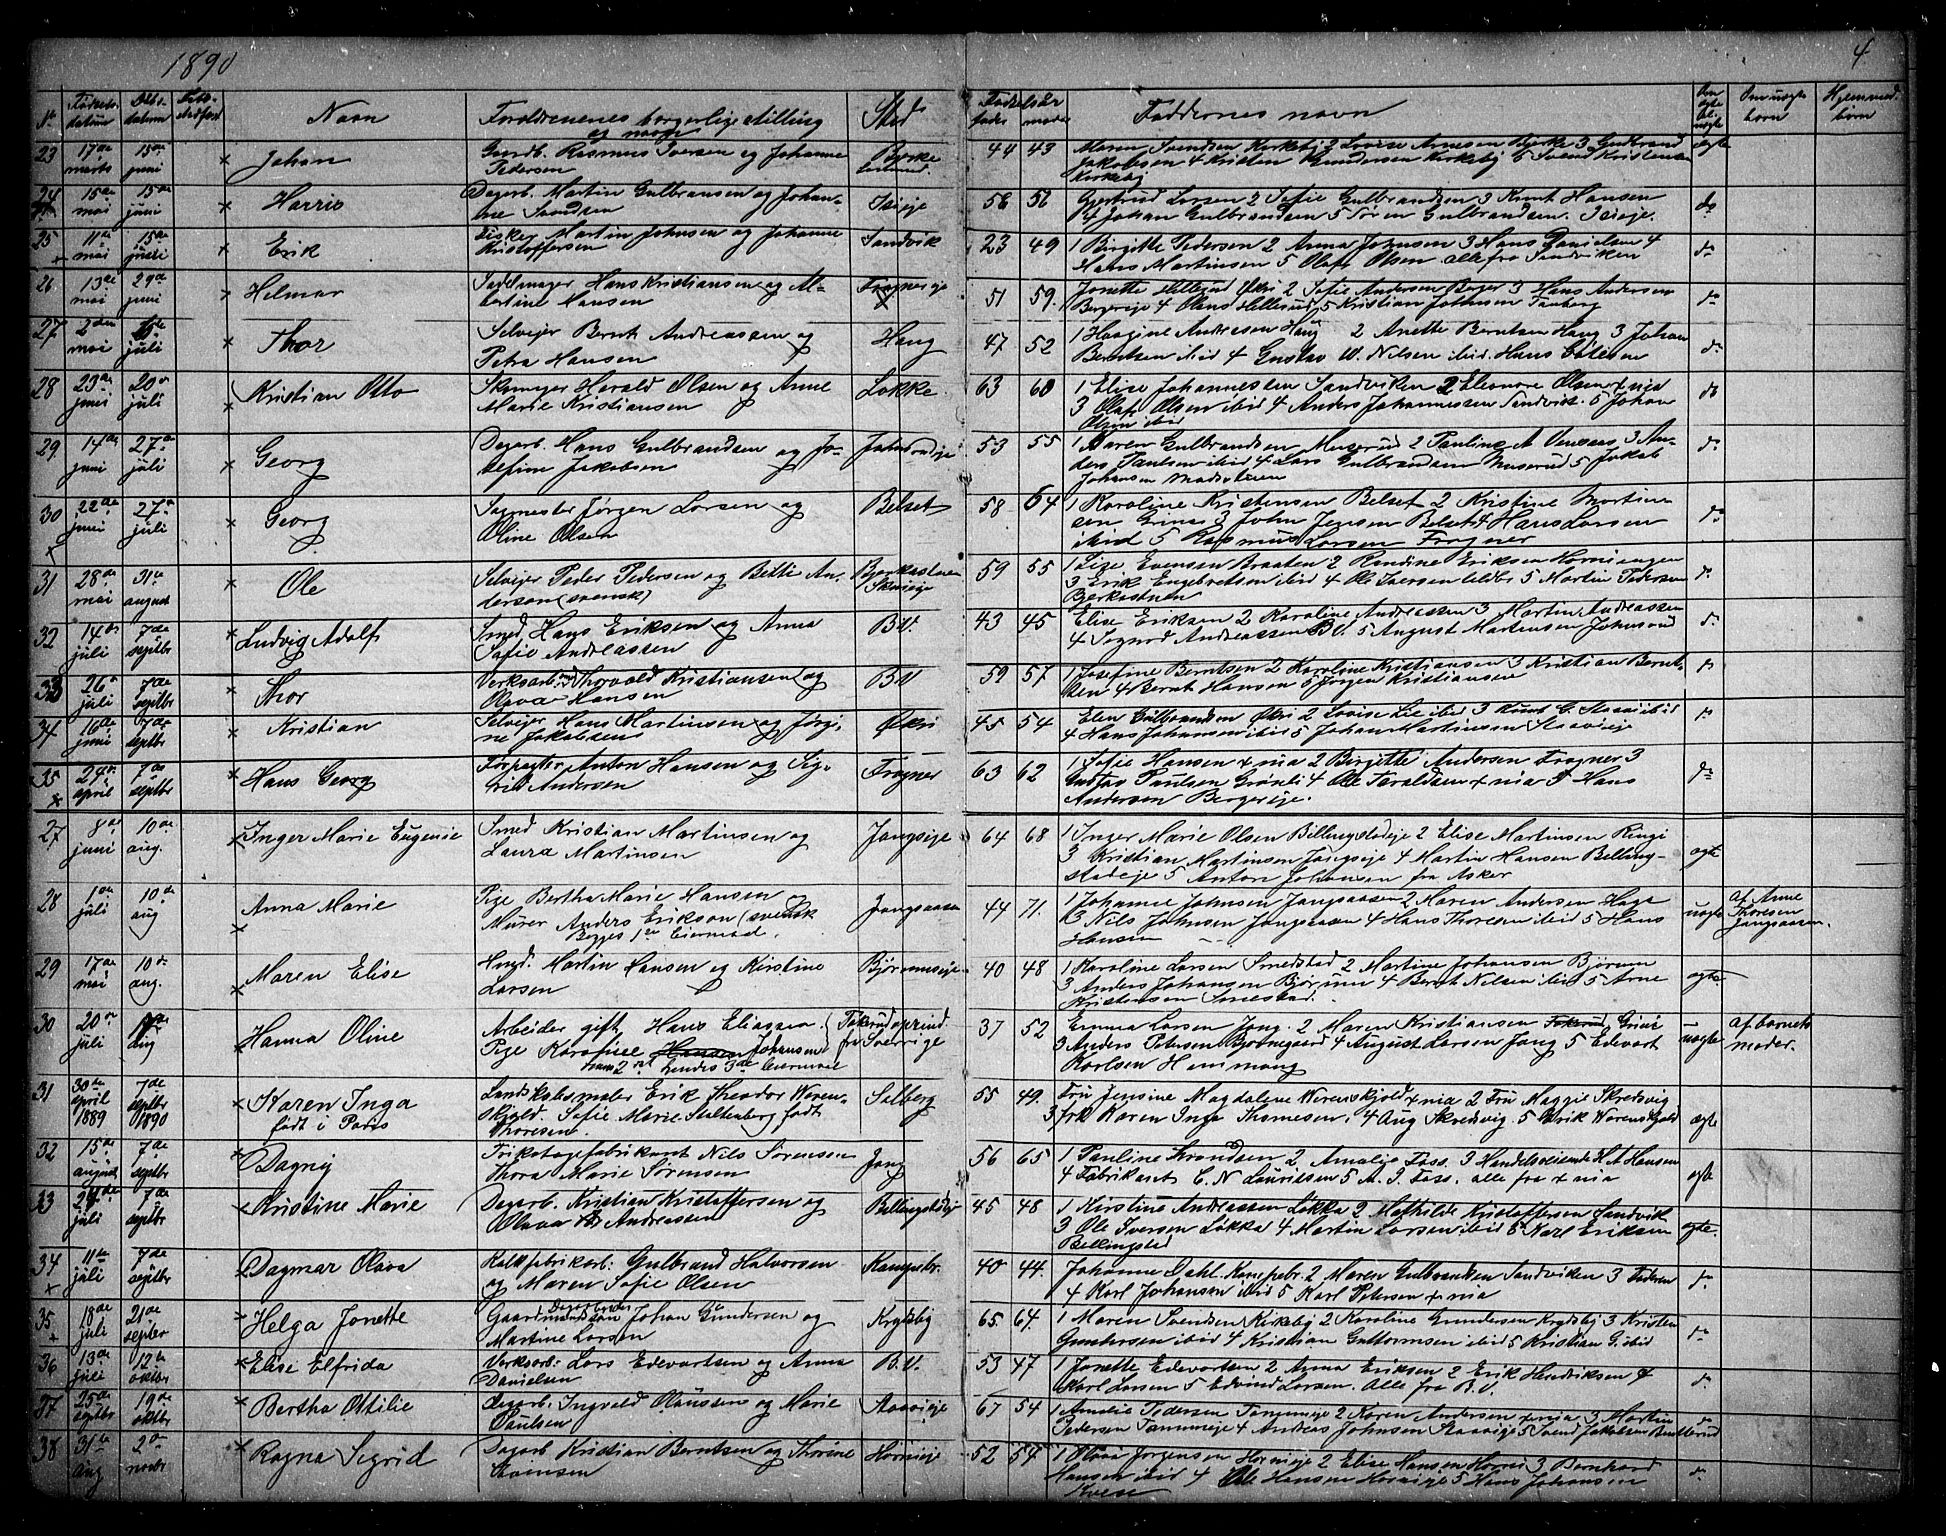 1890
4
No Fødsels-datum Dåbs-datum Navn Forældrenes borgerlige stilling og navn Sted Fødselsår fader moder Faddernes navn Om ægte eli uægte Om uægte børn Hjemmed. børn
23 17de marts 15de juni × Johan Gaardb. Rasmus Iversen og Johanne Pedersen Bjerke 44 43 Maren Svendsen Kirkeby 2 Lovise Arnesen Bjerke 3 Gudbrand Jakobsen 4 Kristen Gundersen Kirkeby 5 Svend Kristensen Kirkeby ægte
24 15de mai 15de juni × Harris Dagarb. Martin Gulbransen og Johanne Isieje 56 56 Gjertrud Larsen 2 Sofie Gulbrandsen 3 Knut Hansen 4 Johan Gulbrandsen 5 Søren Gulbrandsen. Isieje. do
25 11te mai 15de juni × Erik Fisker Martin Johnsen og Johanne Kristoffersen Sandvik 23 49 1 Birgitte Pedersen 2 Anna Johnsen 3 Hans Danielsen 4 Hans Martinsen 5 Olaf Olsen alle fra Sandviken do
26 13de mai 29de juni × Helmar Sadelmager Hans Kristiansen og Albertine Hansen Frognereje 51 59. Jonette Hellerud 2 Sofie Andersen Berger 3 Hans Andersen Bergereje 4 Olaus Hellerud 5 Kristian Johansen do
27 2den mai juli × Thor Selvejer Bernt Andreassen og Petra Hansen Haug 47 52 1 Haagine Andresen Haug 2 Anette Berntsen Haug 3 Johan Berntsen ibid 4 Gustav W. Nilsen ibid. Hans do
28 23de juni 20de juli × Kristian Otto Skomager Harald Olsen og Anne Marie Kristiansen Løkke 63 60 1 Elise Johannessen Sandviken 2 Eleonore Olsen ×nia 3 Olaf Olsen ibid 4 Anders Johannessen Sandvik. 5 Johan Olsen ibid do
29 14de juni 27de juli × Georg Dagarb. Hans Gulbrandsen og Josefine Jakobsen Johnsrudeje 53 55 1 Maren Gulbrandsen Muserud 2 Pauline A Venaas 3 Anders Paulsen ibid 4 Lars Gulbrandsen Muserud 5 Jakob Johansen do
30 22de juni 27de juli × Georg Sagmester Jørgen Larsen og Oline Olsen Belset 58 64 1 Karoline Kristensen Belset 2 Kristine Martinsen Grini 3 John Jensen Belset 4 Hans Larsen ibid 5 Rasmus Larsen Frogner do
31 28de mai 31te august × Ole Selvejer Peder Pedersen og Betti Anderson (svensk) 59 55 1 Lise Evensen Braaten 2 Randine Eriksen Horniengen 3 Erik Engebretsen ibid 4 Ole Iversen 5 Martin Pedersen Bjerkastuen do
32 14de juli 7de septbr × Ludvig Adolf Smed Hans Eriksen og Anna Sofie Andreassen B.V. 43 45 Elise Eriksen 2 Karoline Andreassen 3 Martin Andreassen 4 Sigurd Andreassen B.V. 5 August Martinsen Johnsrud do
33 26de juli 7de septbr × Thor Verksarb. Thorvald Kristiansen og Olava Hansen B.V 59 57 1 Josefine Berntsen 2 Karoline Kristiansen 3 Kristian Berntsen 4 Bernt Hansen 5 Jørgen Kristiansen do
34 16de juni 7de septbr × Kristian Selvejer Hans Martinsen og Jørgine Jakobsen Økri 45 54 Elen Gulbrandsen Økri 2 Lovise Lie ibid 3 Knut G. ibid 4 Hans Johansen ibid 5 Johan Martinsen Staavieje do
35 24de april 7de septbr × Hans Georg Forpagter Anton Hansen og Sigrid Andersen Frogner 63 62 1 Sofie Hansen ×nia 2 Birgitte Andersen Frogner 3 Gustav Paulsen Grønli 4 Ole Taraldsen ×nia 5 Hans Andersen Bergereje. do
27 8de juni 10de aug. × Inger Marie Eugenie Smed Kristian Martinsen og Laura Martinsen Jongseje 64 68 1 Inger Marie Olsen Billingstadeje 2 Elise Martinsen Ringi 3 Kristian Martinsen Jongseje 4 Martin Hansen Billingstadeje 5 Anton Johansen fra Asker ægte
28 1de juli 10de aug × Anna Marie Pige Bertha Marie Hansen og Murer Anders Erikson (svensk Begges 1ste leiermaal. Jongsaasen 44 71 1 Johanne Johnsen Jongsaasen 2 Maren Andersen Haga 3 Nils Johnsen Jongsaasen 4 Hans Thoresen ibid 5 Hans Hansen uægte af Anne Thoresen Jongsaasen.
29 17de mai 10de aug. × Maren Elise Hmd. Martin Hansen og Kirstine Larsen Bjørnumseje 40 48 1 Karoline Larsen Smedstad 2 Martine Johansen Bjørum 3 Anders Johansen Bjørum 4 Bernt Nilsen ibid 5 Arne Kristensen Smestad. ægte
30 20de juli aug × Hanna Oline Arbeider gift, Hans Eliassen Pige Karoline Hansen Johansen hans 2det hendes 3de leiermaal (Tokerud oprind fr Sverrige 37 52 Emma Larsen Jong. 2 Maren Kristiansen Tokerud 3 Anders Petersen Bjørnegaard 4 August Larsen Jong 5 Edevart Karlsen Hemmong uægte af barnets moder.
31 30te april 1889 7de septbr 1890 × Karen Inga født i Paris Landskabsmaler Erik Theodor Werenskjold. Sofie Marie Stoltenberg født Thoresen. Solberg 55 49. Fru Jensine Magdalene Werenskjold ×nia 2 Fru Maggie Skredsvig 3 frk Karen Inga Thomesen, 4 Aug Skredsvig. 5 Werenskjold ægte
32 15de august 7de septbr × Dagny Trikotagefabrikant Nils Sørensen Thora Marie Sørensen Jong 56 65 1 Pauline Svendsen 2 Amalie Foss. 3 Handelsreisende H. A Hansen 4 Fabrikant C. N Lauritsen 5 A. J. Foss. alle fra ×nia ægte
33 juli 7de septbr Kristine Marie Dagarb. Kristian Kristoffersen og Olava Andreassen Billingstadeje 45 48 1 Kirstine Andreassen Løkka 2 Mathilde Kristoffersen Sandvik 3 Ole Iversen Løkka 4 Martin Larsen ibid 5 Karl Eriksen Billingstad ægte.
34 11te juli 7de septbr × Dagmar Olava Kalkfabrikarb. Gulbrand Halvorsen og Maren Sofie Olsen Kampebr. 40 44. Johanne Dahl Kampebr. 2 Maren Gulbrandsen Sandviken 3 4 Karl Johansen ibid 5 Karl Petersen ×nia do
35 18de juli 21de septbr × Helga Jonette Gaardmandssøn Dagarbeider Johan Gundersen og Martine Larsen Krydsby 65. 64. 1 Maren Svendsen Kirkeby 2 Karoline Gundersen Krydsby 3 Kristen Gundersen ibid 4 Kristian Guttormsen ibid 5 Kristian G. ibid do
36 13de juli 12te oktbr × Elise Elfrida Verksarb: Lars Edevartsen og Anna Danielsen B.V. 53 47 1 Jonette Edevartsen 2 Anna Eriksen 2 Erik Hendriksen 4 Karl Larsen 5 Edvind Larsen. Alle fra B.V. do
37 25de septbr 19de oktbr × Bertha Ottilie Dagarb. Ingvald Olaussen og Marie Paulsen Staavieje 67 54 1 Amalie Pedersen Tanumeje 2 Karen Andersen ×nia 3 Martin Pedersen Tanumeje 4 Andreas Johnsen Staavieje 5 Svend Jakobsen do
38 31te aug 2de novbr × Ragna Sigrid Dagarb Kristian Berntsen og Thorine Evensen Hornieje 52 54 1 Olava Jørgensen Hornieje 2 Elise Hansen Horni 3 Bernhard Hansen ibid 4 Ole Hansen Hornieje 5 Hans Johansen do